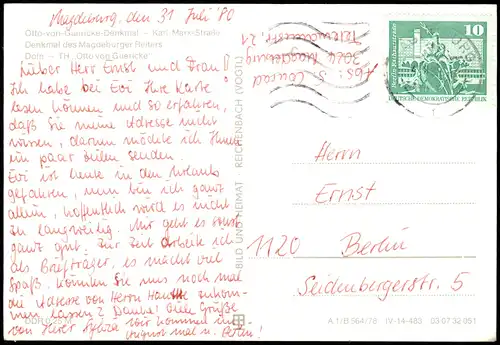 Magdeburg, den 31 Juli '80
Otto-von-Guericke-Denkmal – Karl-Marx-Straße
Denkmal des Magdeburger Reiters
Dom – TH „Otto von Guericke“
Lieber Herr Ernst und Frau!
Ich habe bei Evi Ihre Karte
lesen können und so erfahren,
daß Sie meine Adresse nicht
wissen, darum möchte ich Ihnen
ein paar Zeilen senden.
Evi ist heute in den Urlaub
gefahren, nun bin ich ganz
allein, hoffentlich wird es nicht
zu langweilig. Mir geht es sonst
ganz gut. Zur Zeit arbeite ich
als Briefträger, es macht viel
Spaß. Könnten Sie uns noch mal
die Adresse von Herrn zukom-
men lassen? Danke! Viele Grüße
von Ihrer wir kommen im
August mal n. Berlin!
BILD UND HEIMAT REICHENBACH (VOGTL)
Abs. S. Conrad
3024 Magdeburg
21
10
DEUTSCHE DEMOKRATISCHE REPUBLIK
Herrn
Ernst
1120 Berlin
Seidenbergerstr. 5
A 1/B 564/78 IV-14-483 03 07 32 051